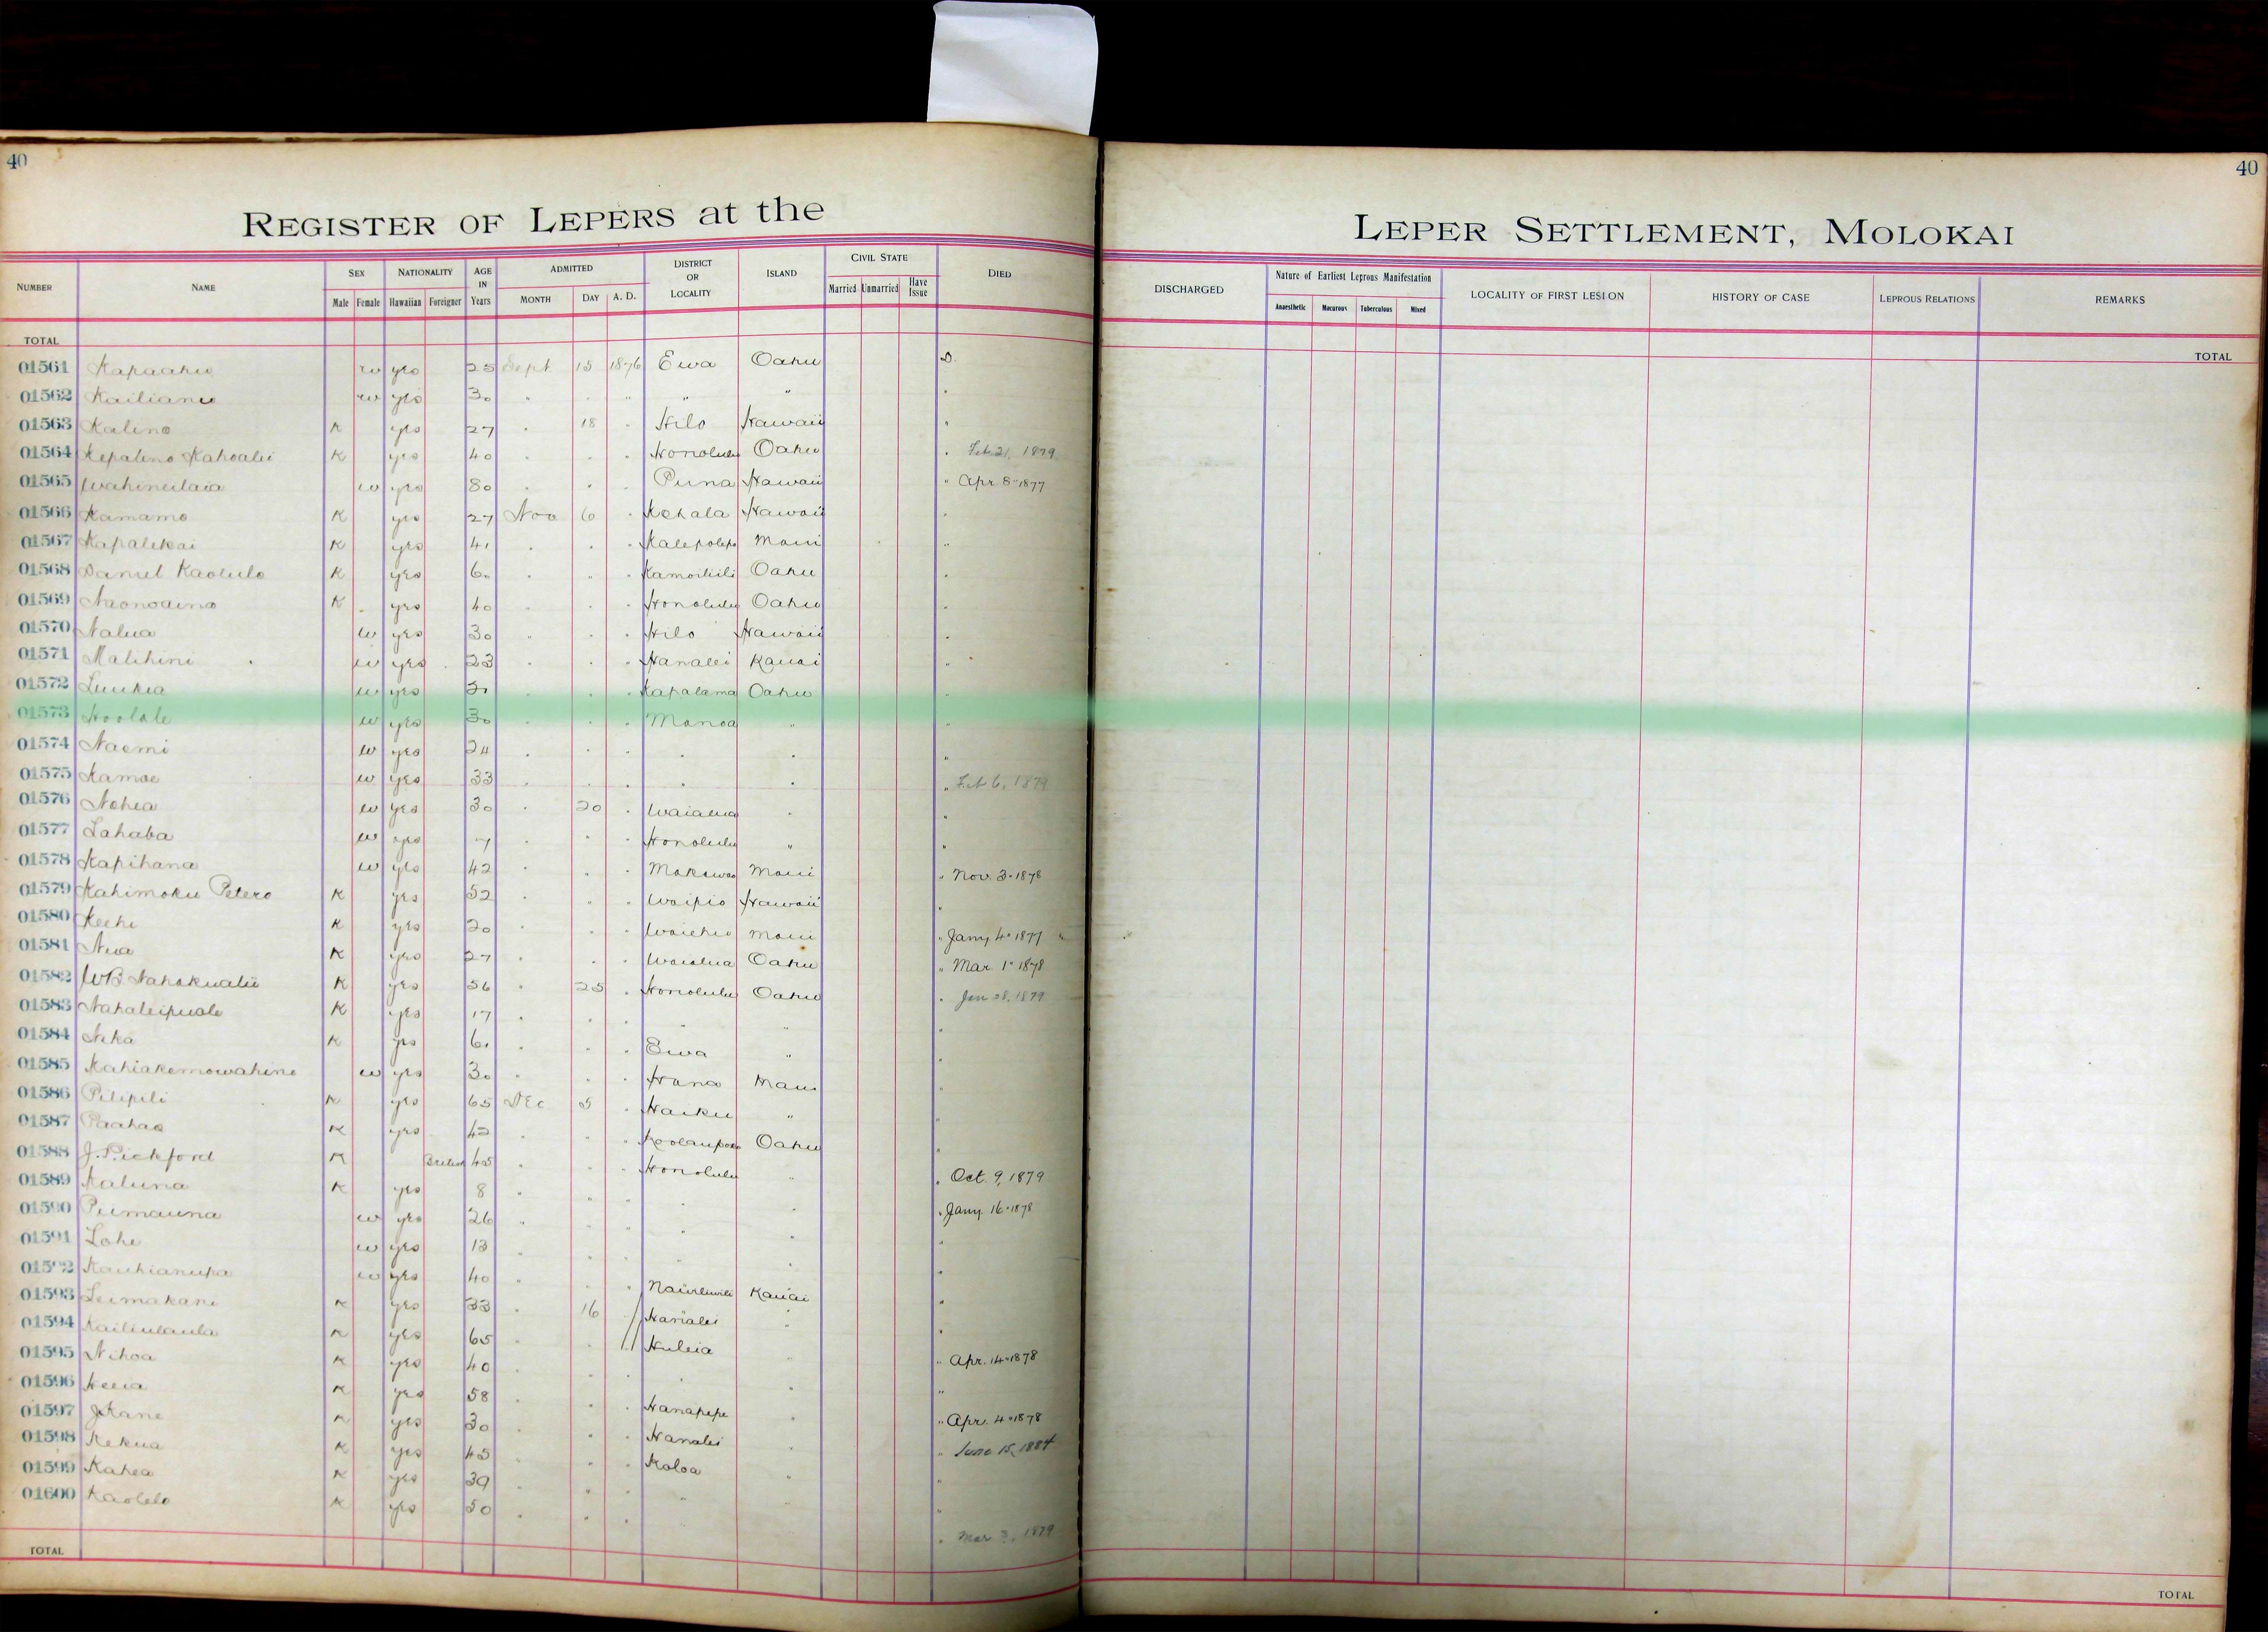 40
40
REGISTER OF LEPERS at the
LEPER SETTLEMENT, MOLOKAI
NUMBER NAME SEX Male Female NATIONALITY Hawaiian Foreigner AGE IN Years ADMITTED MONTH DAY A. D. DISTRICT OR LOCALITY ISLAND CIVIL STATE Married Unmarried Have Issue DIED
DISCHARGED Nature of Earliest Leprous Manifestation Anaesthetic Macurous Tuberculous Mixed LOCALITY OF FIRST LESION HISTORY OF CASE LEPROUS RELATIONS REMARKS
TOTAL
TOTAL
01561 Kapaahu w yes 25 Sept 15 1876 Ewa Oahu D.
01562 w yes 30 " " " " " "
01563 Kalino K yes 27 " 18 " Hilo Hawaii "
01564 Kepalino Kahoalii K yes 40 " " " Honolulu Oahu " Feb. 21, 1879
01565 w yes 80 " " " Puna Hawaii " Apr. 8 " 1877
01566 Kamamo K yes 27 Nov 6 " Kohala Hawaii "
01567 Kapalekai K yes 41 " " " Kalepolepo Maui "
01568 Daniel Kaolulo K yes 60 " " " Kamoiliili Oahu "
01569 K yes 40 " " " Honolulu Oahu "
01570 Nalua w yes 30 " " " Hilo Hawaii "
01571 Malihini w yes 23 " " " Hanalei Kauai "
01572 Luukia w yes " " " Kapalama Oahu "
01573 Hoolale w yes 30 " " " Manoa " "
01574 Naomi w yes 24 " " " " " "
01575 Kamae w yes 33 " " " " " " Feb 6, 1879
01576 Nohea w yes 30 " 20 " Waialua " "
01577 Lahaba w yes 7 " " " Honolulu " "
01578 Kapihana w yes 42 " " " Makawao Maui " Nov. 3 " 1878
01579 Kahimoku Petero K yes 52 " " " Waipio Hawaii "
01580 Keehi K yes 20 " " " Waiehu Maui " Jany 4 " 1877 "
01581 K yes 27 " " " Waialua Oahu " Mar. 1 " 1878
01582 WB Nahokualii K yes 56 " 25 " Honolulu Oahu " Jan 28, 1879
01583 Nahaleipuale K yes 17 " " " " " "
01584 Nika K yes 61 " " " Ewa " "
01585 Kahiakemowahine w yes 30 " " " Hana Maui "
01586 Pilipili K yes 65 Dec 5 " Haiku " "
01587 Paahao K yes 42 " " " Koolaupoko Oahu "
01588 J. Pickford K British 45 " " " Honolulu " " Oct. 9, 1879
01589 Kaluna K yes 8 " " " " " " Jany 16 " 1878
01590 Puimauna w yes 26 " " " " " "
01591 Lohe w yes 13 " " " " " "
01592 w yes 40 " " " Nawiliwili Kauai "
01593 Leimakani K yes 33 " 16 " Hanalei " "
01594 Kailiulaula K yes 65 " " " Huleia " " Apr. 14 " 1878
01595 Nihoa K yes 40 " " " " " "
01596 Heeia K yes 58 " " " Hanapepe " " Apr. 4 " 1878
01597 J Kane K yes 30 " " " Hanalei " " June 15, 1884
01598 Kekua K yes 45 " " " Koloa " "
01599 Kahea K yes 39 " " " " " "
01600 Kaolelo K yes 50 " " " " Mar 3, 1879
TOTAL
TOTAL